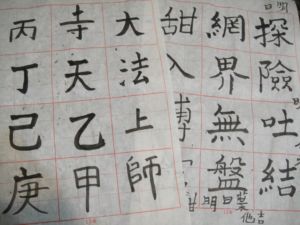 探險吐結
網界無盤
甜入
明日葉
大法上師
寺天乙甲
丙丁己庚